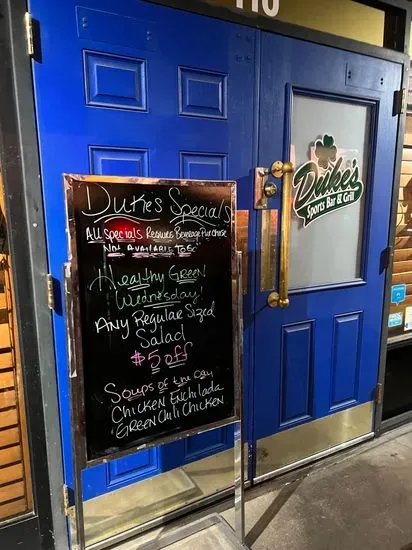 110
Duke's Specials
All Specials Require Beverage Purchase
Not Available To Go
Healthy Green
Wednesday!
Any Regular Sized
Salad
$5 off
Soups of the Day
Chicken Enchilada
Green Chili Chicken
Duke's
Sports Bar & Grill